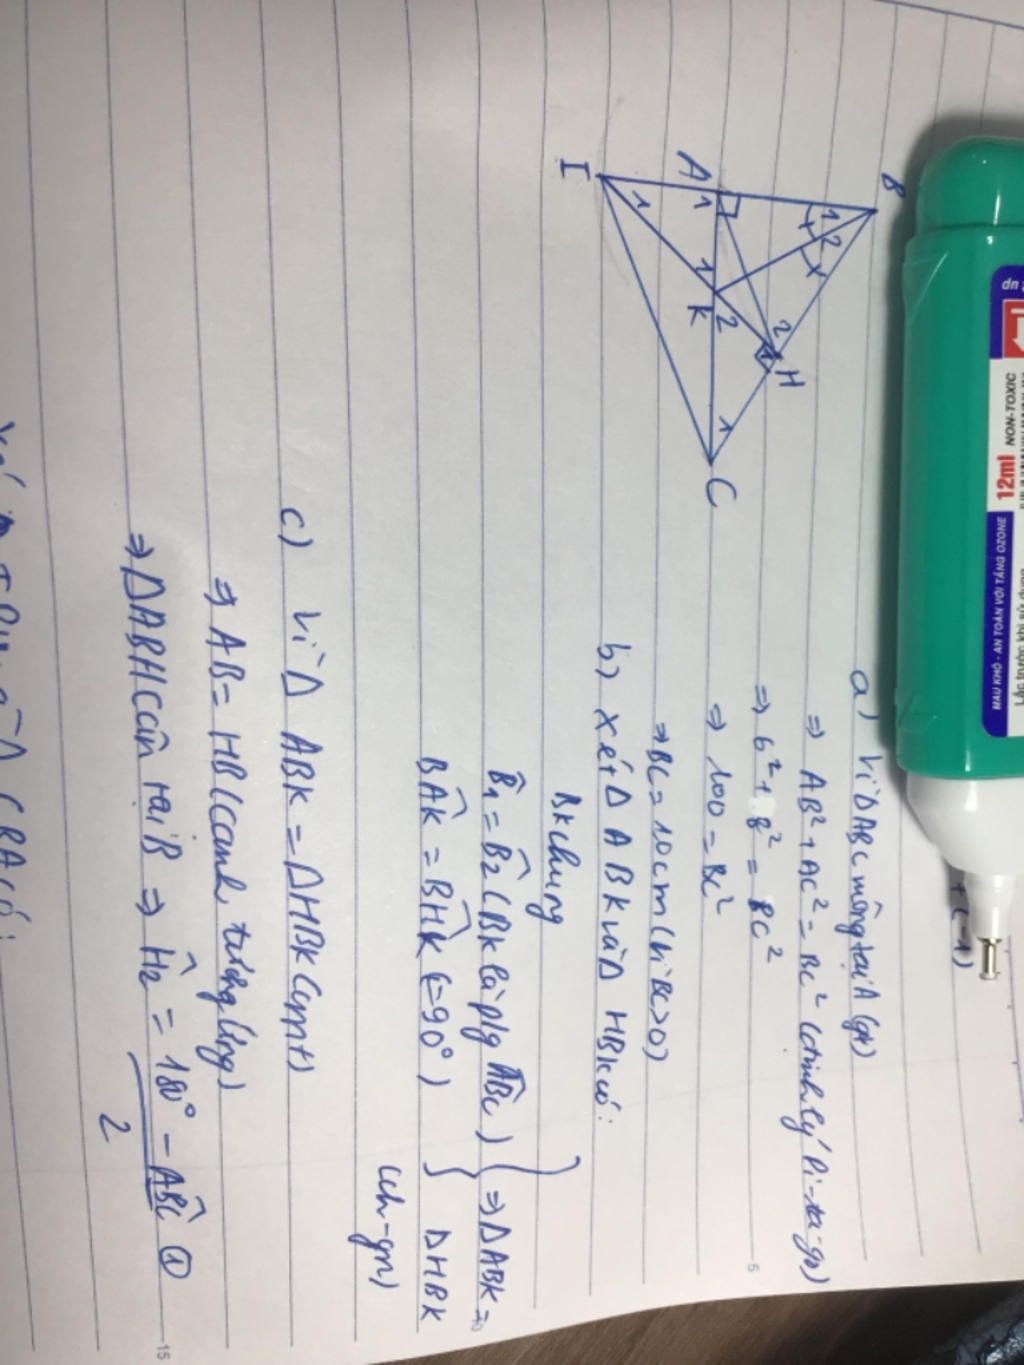 B
1
2
x
x
A
1
2
H
1
1
K
2
I
1
1
C
a) Vì ΔABC vuông tại A (gt)
⇒ AB² + AC² = BC² (định lý Pi-ta-go)
⇒ 6² + 8² = BC²
⇒ 100 = BC²
⇒ BC = 10cm (vì BC>0)
b) Xét Δ ABK và Δ HBK có:
BK chung
B̂₁ = B̂₂ (BK là p/g ABC) } ⇒ ΔABK =
BAK = BHK (=90°) } ΔHBK
(ch-gn)
c) Vì Δ ABK = ΔHBK (cmt)
⇒ AB = HB (cạnh tương ứng)
⇒ ΔABH cân tại B ⇒ Ĥ₂ = 180° - ABC ①
2
+ (-1)
5
10
15
NON-TOXIC
12ml
MAU KHÔ - AN TOÀN VỚI TẦNG OZONE
Lắc trước khi sử dụng